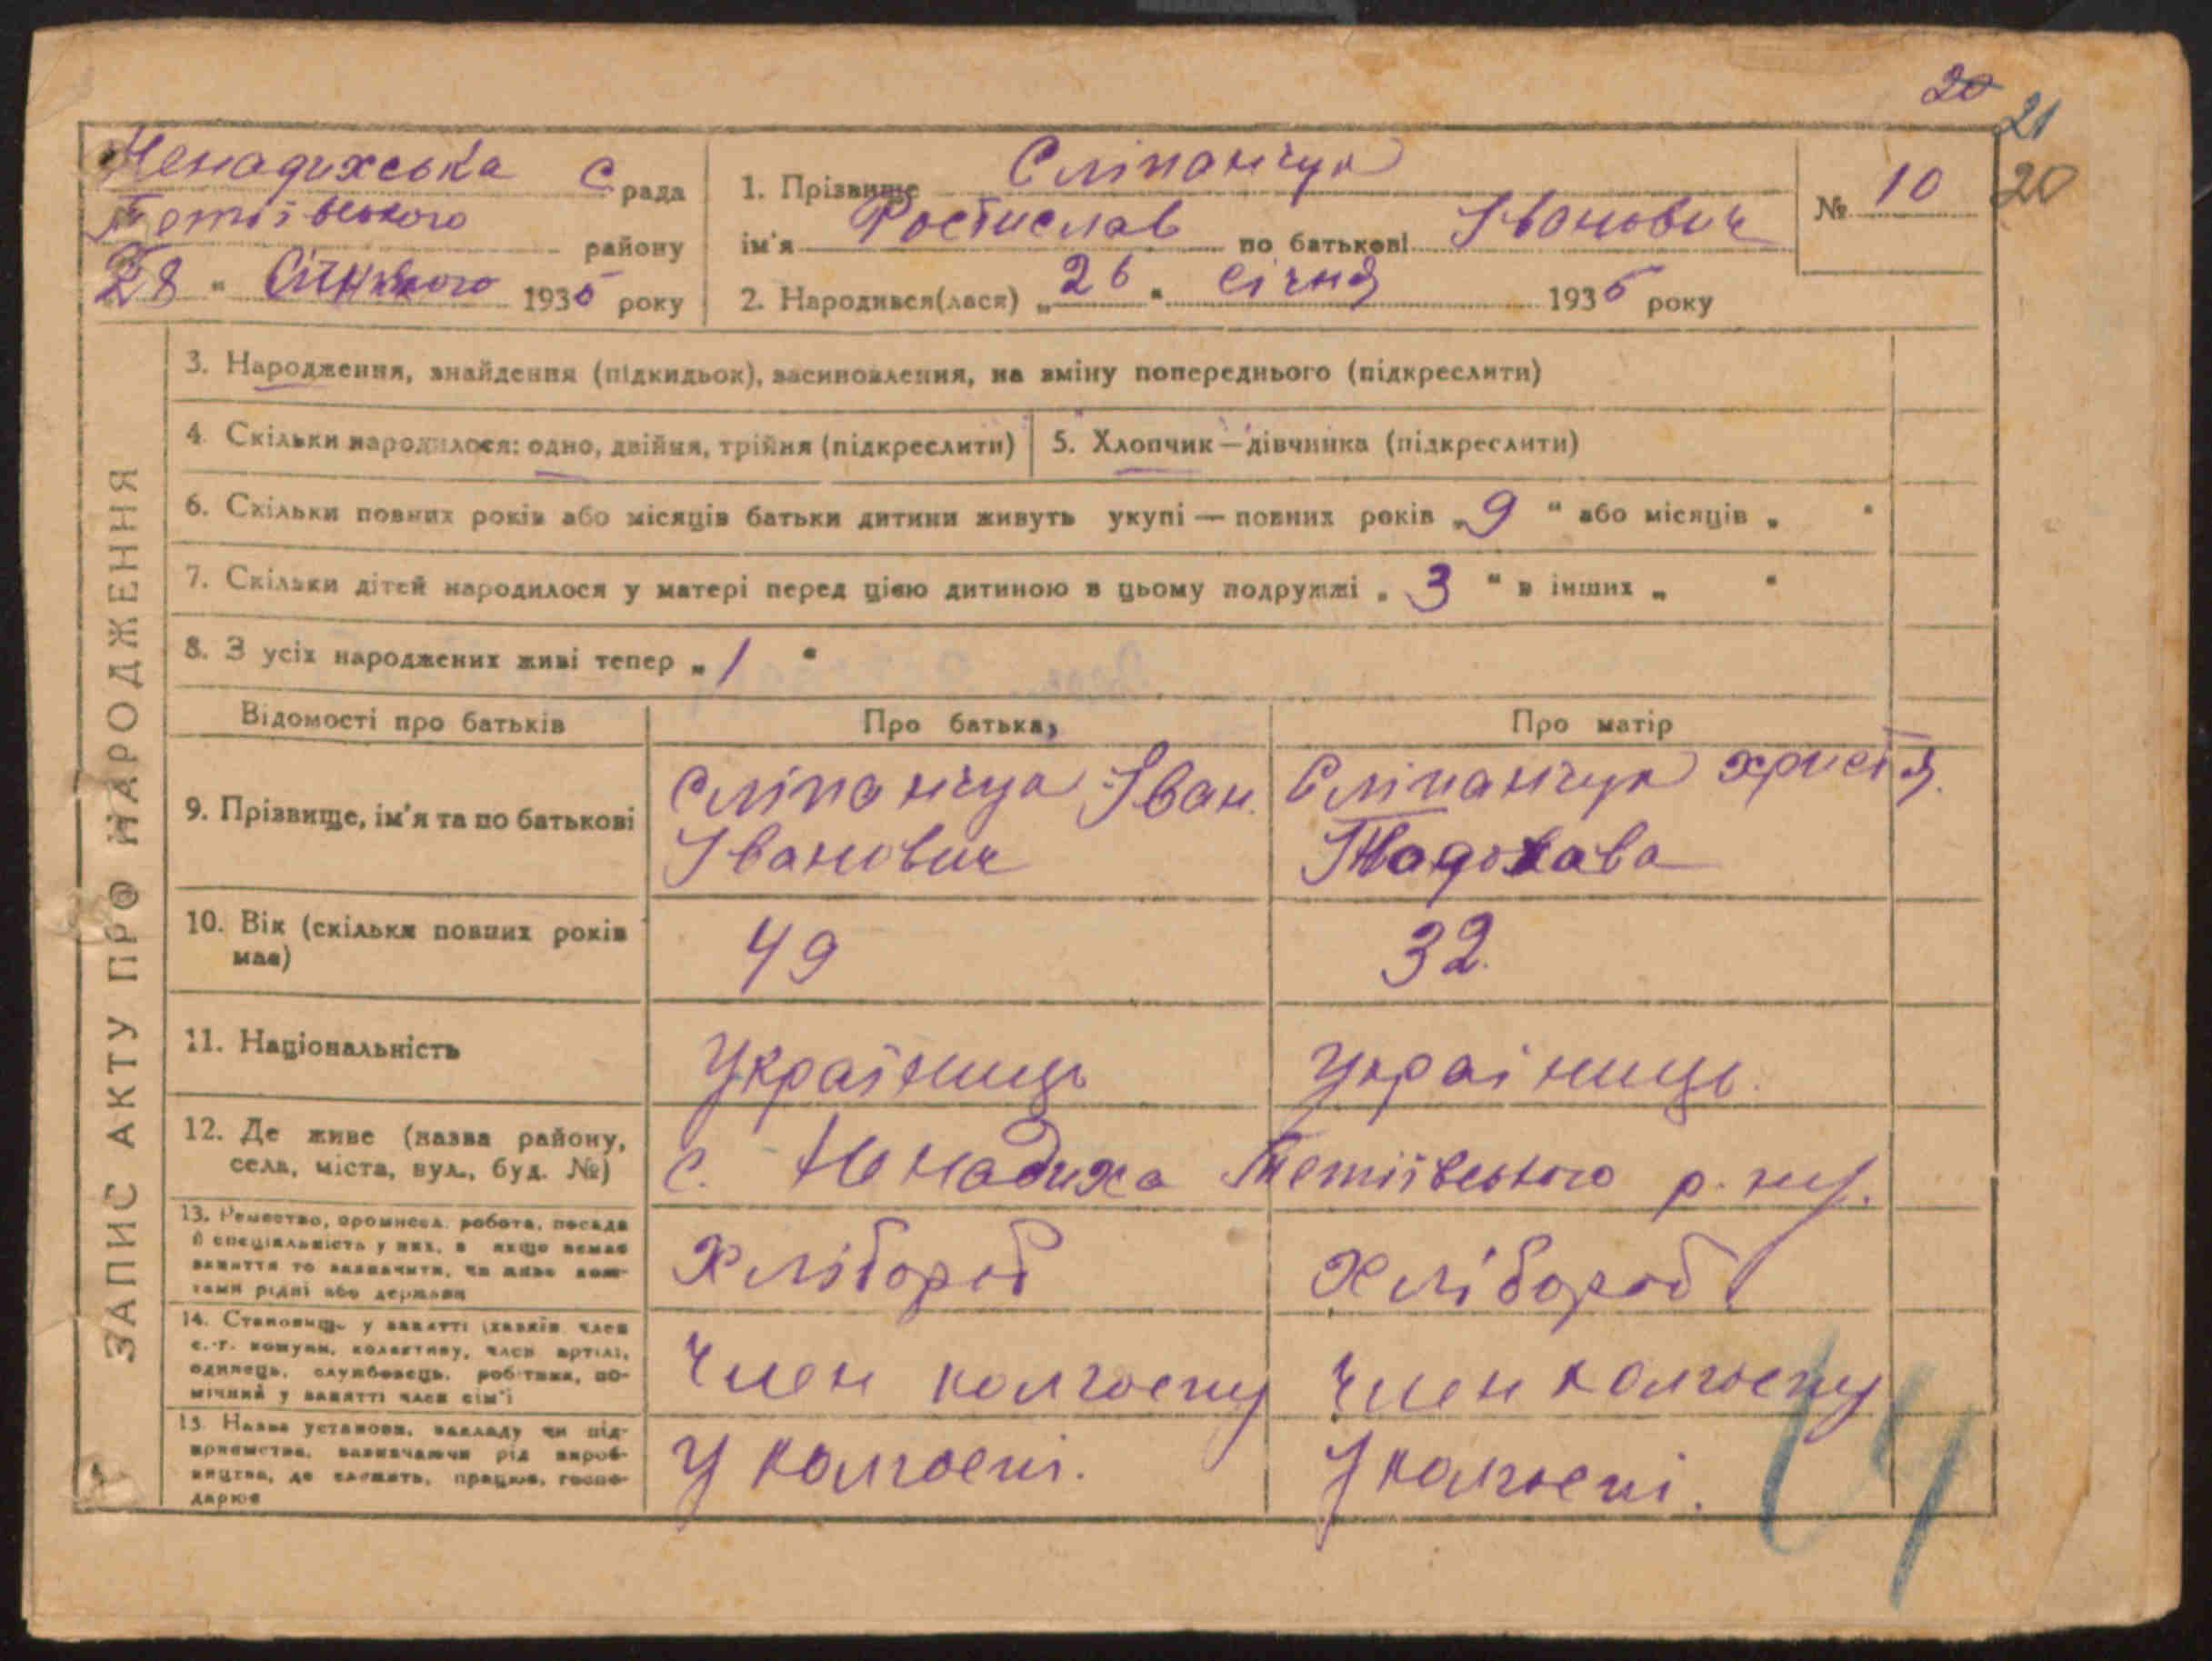 20
21
20
Ненадихська С рада
Тетіївського району
28 " Січньового 1936 року
1. Прізвище Сліпанчук
ім'я Ростислав по батькові Іванович
2. Народився(лася) „ 26 " січня 1936 року
№ 10
ЗАПИС АКТУ ПРО НАРОДЖЕННЯ
3. Народження, знайдення (підкидьок), засиновлення, на зміну попереднього (підкреслити)
4. Скільки народилося: одно, двійня, трійня (підкреслити)
5. Хлопчик — дівчинка (підкреслити)
6. Скільки повних років або місяців батьки дитини живуть укупі — повних років „ 9 " або місяців „ "
7. Скільки дітей народилося у матері перед цією дитиною в цьому подружжі „ 3 " в інших „ "
8. З усіх народжених живі тепер „ 1 "
Відомості про батьків Про батька, Про матір
9. Прізвище, ім'я та по батькові
Сліпанчук Іван
Іванович
Сліпанчук христя
10. Вік (скільки повних років має)
49
32.
11. Національність
Українць
Українць.
12. Де живе (назва району,
села, міста, вул., буд. №)
с. Ненадиха Тетіївського р.
13. Ремество, промисел, робота, посада
й спеціальність у них, а якщо немає
заняття то зазначити, чи живе кош-
тами рідні або держави
Хлібороб
Хлібороб
14. Становище у занятті (хазяїн, член
с.-г. комуни, колективу, член артілі,
одинець, службовець, робітник, по-
мічний у занятті член сім'ї
Член колгоспу
Член колгоспу
15. Назва установи, закладу чи під-
приємства, зазначаючи рід вироб-
ництва, де служить, працює, госпо-
дарює
У колгоспі.
У колгоспі.